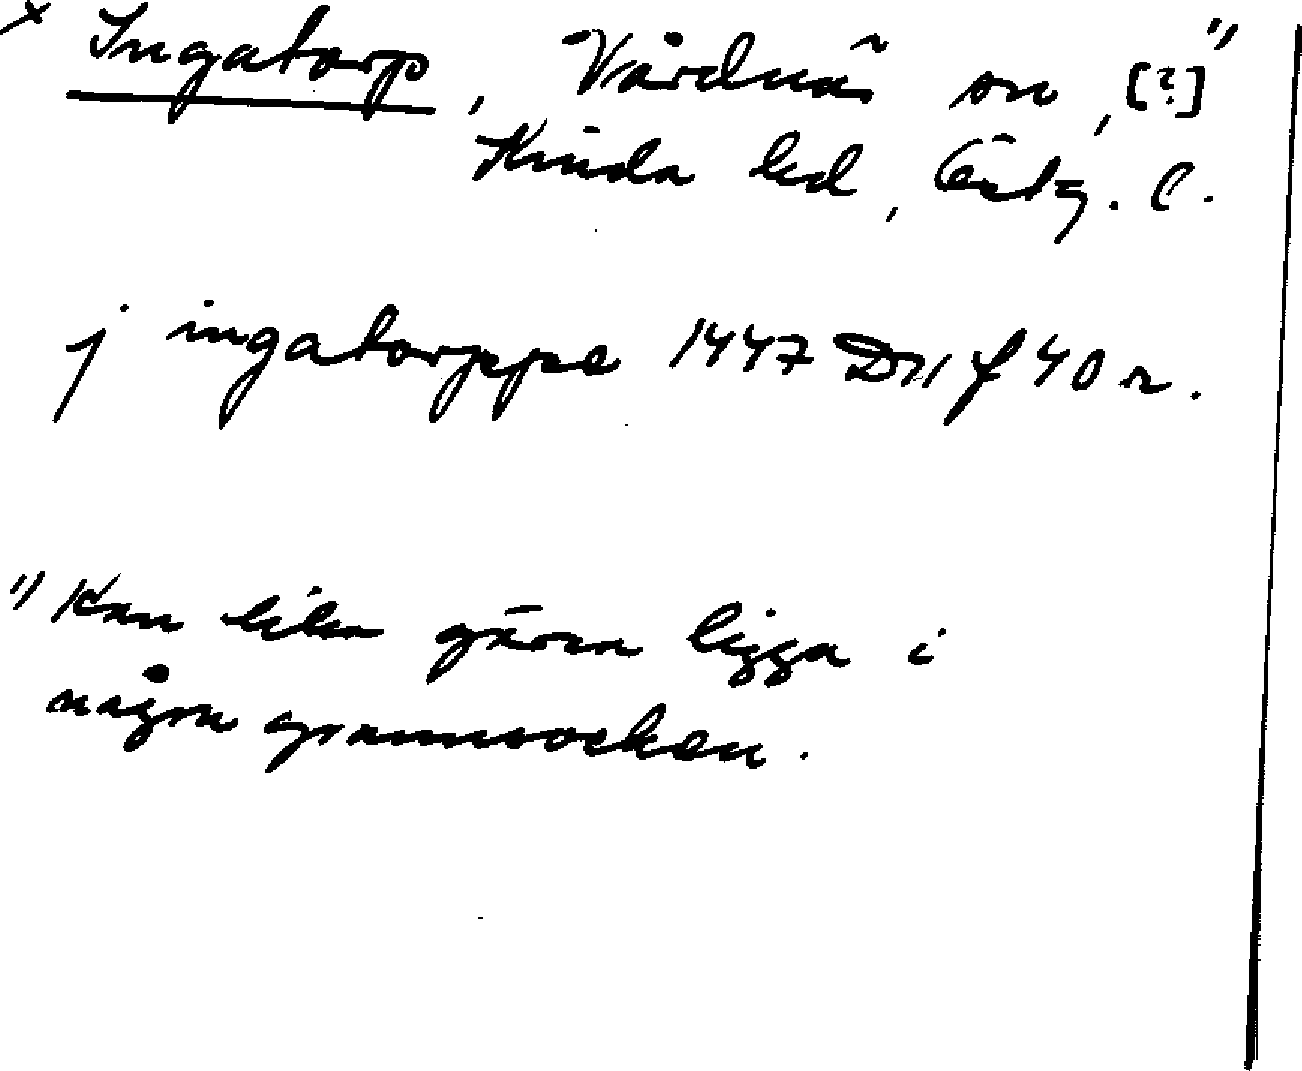 x Ingatorp, Vårdnäs sn, [?]"
Kinda hd, Östg. l.
j ingatorppe 1447 D11 f 40 r.
" Kan lika gärna ligga i
någon grannsocken.